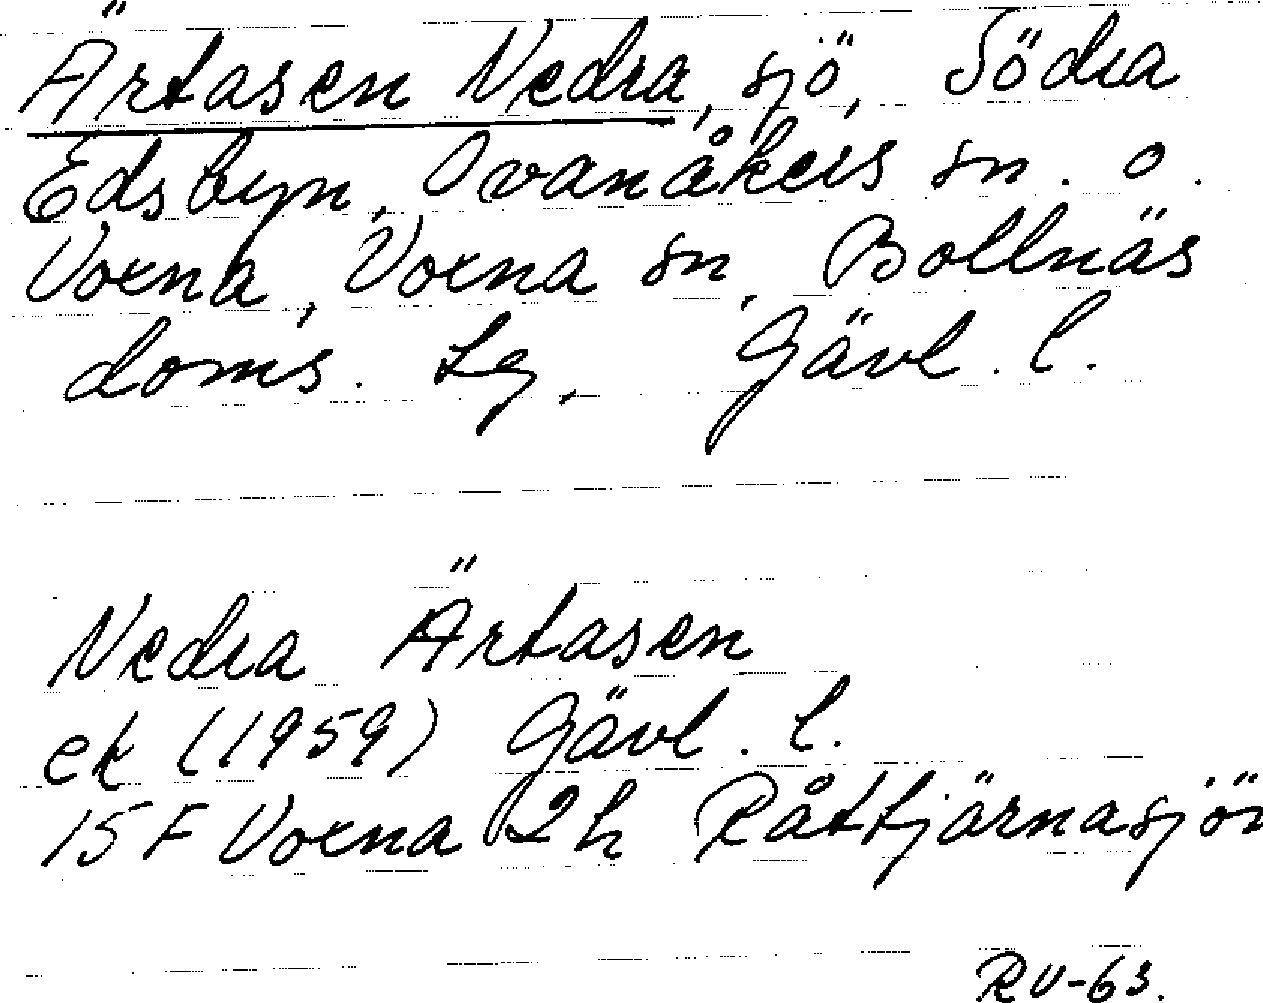 Ärtasen Nedra, sjö, Södra
Edsbyn, Ovanåkers sn. o.
Voxna, Voxna sn, Bollnäs
doms. lg, Gävl. l.
Nedra Ärtasen
ek (1959) Gävl. l.
15 F Voxna 2h Råttjärnasjön
RV-63.